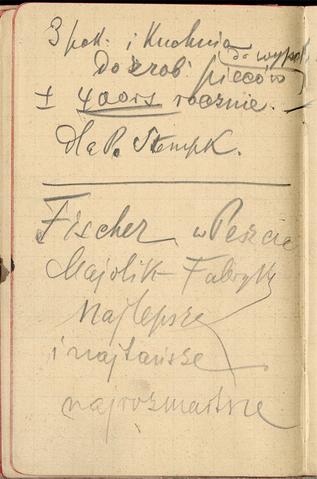 3 pok. i Kuchnia
do wypal.
do zrob. pieców
± 400 rs rocznie.
dla P. Stempk.
Fischer w Peszcie
Majolik-Fabryk
najlepsze
i najtańsze
najrozmaitsze